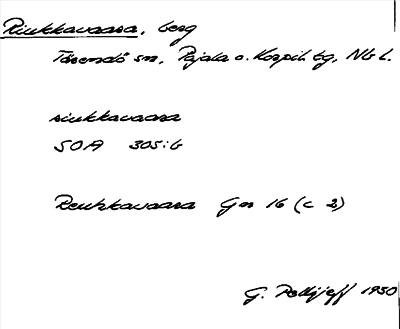 Riukkavaara, berg
Tärendö sn, Pajala o. Korpil. tg, Nb l.
riukkavaara
SOA 305:6
Reukkavaara Gn 16 (c 2)
G. Pellijeff 1950